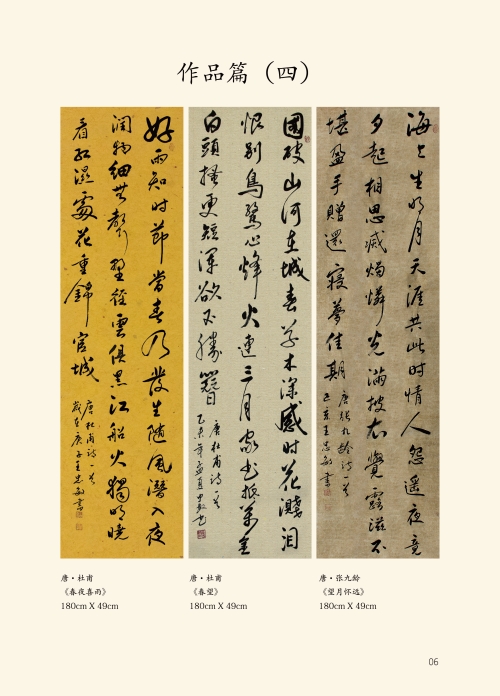 作品篇（四）
好雨知时節當春乃發生随風潛入夜
润物细無聲野徑雲俱黑江船火獨明曉
看红濕處花重錦官城
唐杜甫诗一首
歲在庚子王忠敏書
國破山河在城春草木深感时花濺泪
恨别鳥驚心烽火連三月家书抵萬金
白頭搔更短渾欲不勝簪
唐杜甫诗一首
己亥年孟夏忠敏书
海上生明月天涯共此时情人怨遥夜竟
夕起相思滅燭憐光满披衣覺露滋不
堪盈手贈還寢夢佳期
唐張九龄诗一首
己亥王忠敏書
唐·杜甫
《春夜喜雨》
180cm X 49cm
唐·杜甫
《春望》
180cm X 49cm
唐·张九龄
《望月怀远》
180cm X 49cm
06